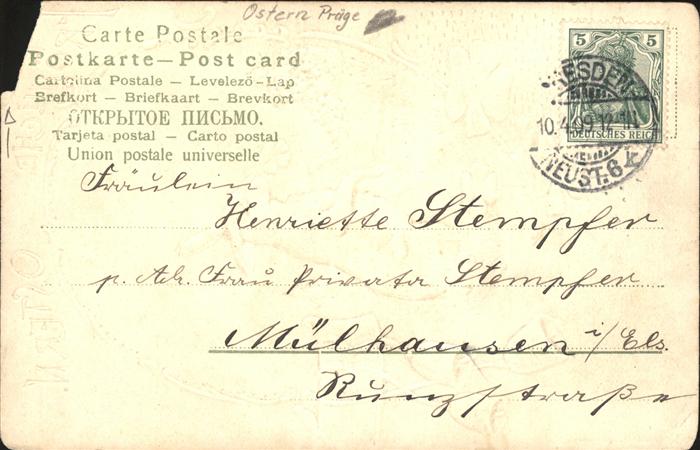 Ostern Präge
Carte Postale
Postkarte—Post card
Cartolina Postale – Levelező-Lap
Brefkort – Briefkaart – Brevkort
ОТКРЫТОЕ ПИСЬМО.
Tarjeta postal – Carto postal
Union postale universelle
5 5
DEUTSCHES REICH
DRESDEN
10.4.09.12-1N
NEUST. 6
Fräulein
Henriette Stempfer
p. Adr. Frau Privata Stempfer
Mülhausen i/Els.
Runzstraße